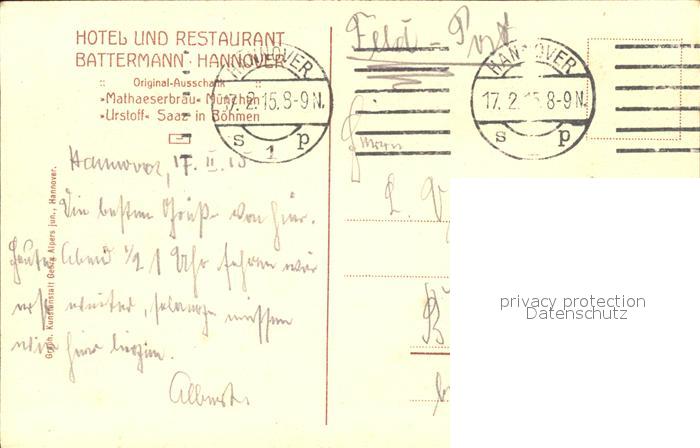 HOTEL UND RESTAURANT
BATTERMANN · HANNOVER
:: Original-Ausschank ::
»Mathaeserbräu« München
»Urstoff« Saaz in Böhmen
HANNOVER
17.2.15.8-9N.
s 1 p
Feld-Post
HANNOVER
17.2.15.8-9N.
s p
Herrn
Hannover, 17. II. 15
Die besten Grüße von hier.
Heute Abend 1/2 1 Uhr fahren wir
erst weiter, solange müssen
wir hier liegen.
Albert.
Graph. Kunstanstalt Georg Alpers jun., Hannover.
L.
B
privacy protection
Datenschutz